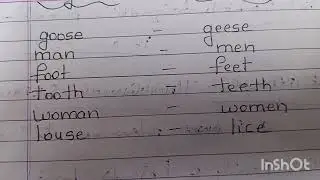 goose - geese
man - men
foot - feet
tooth - teeth
woman - women
louse - lice
InShOt